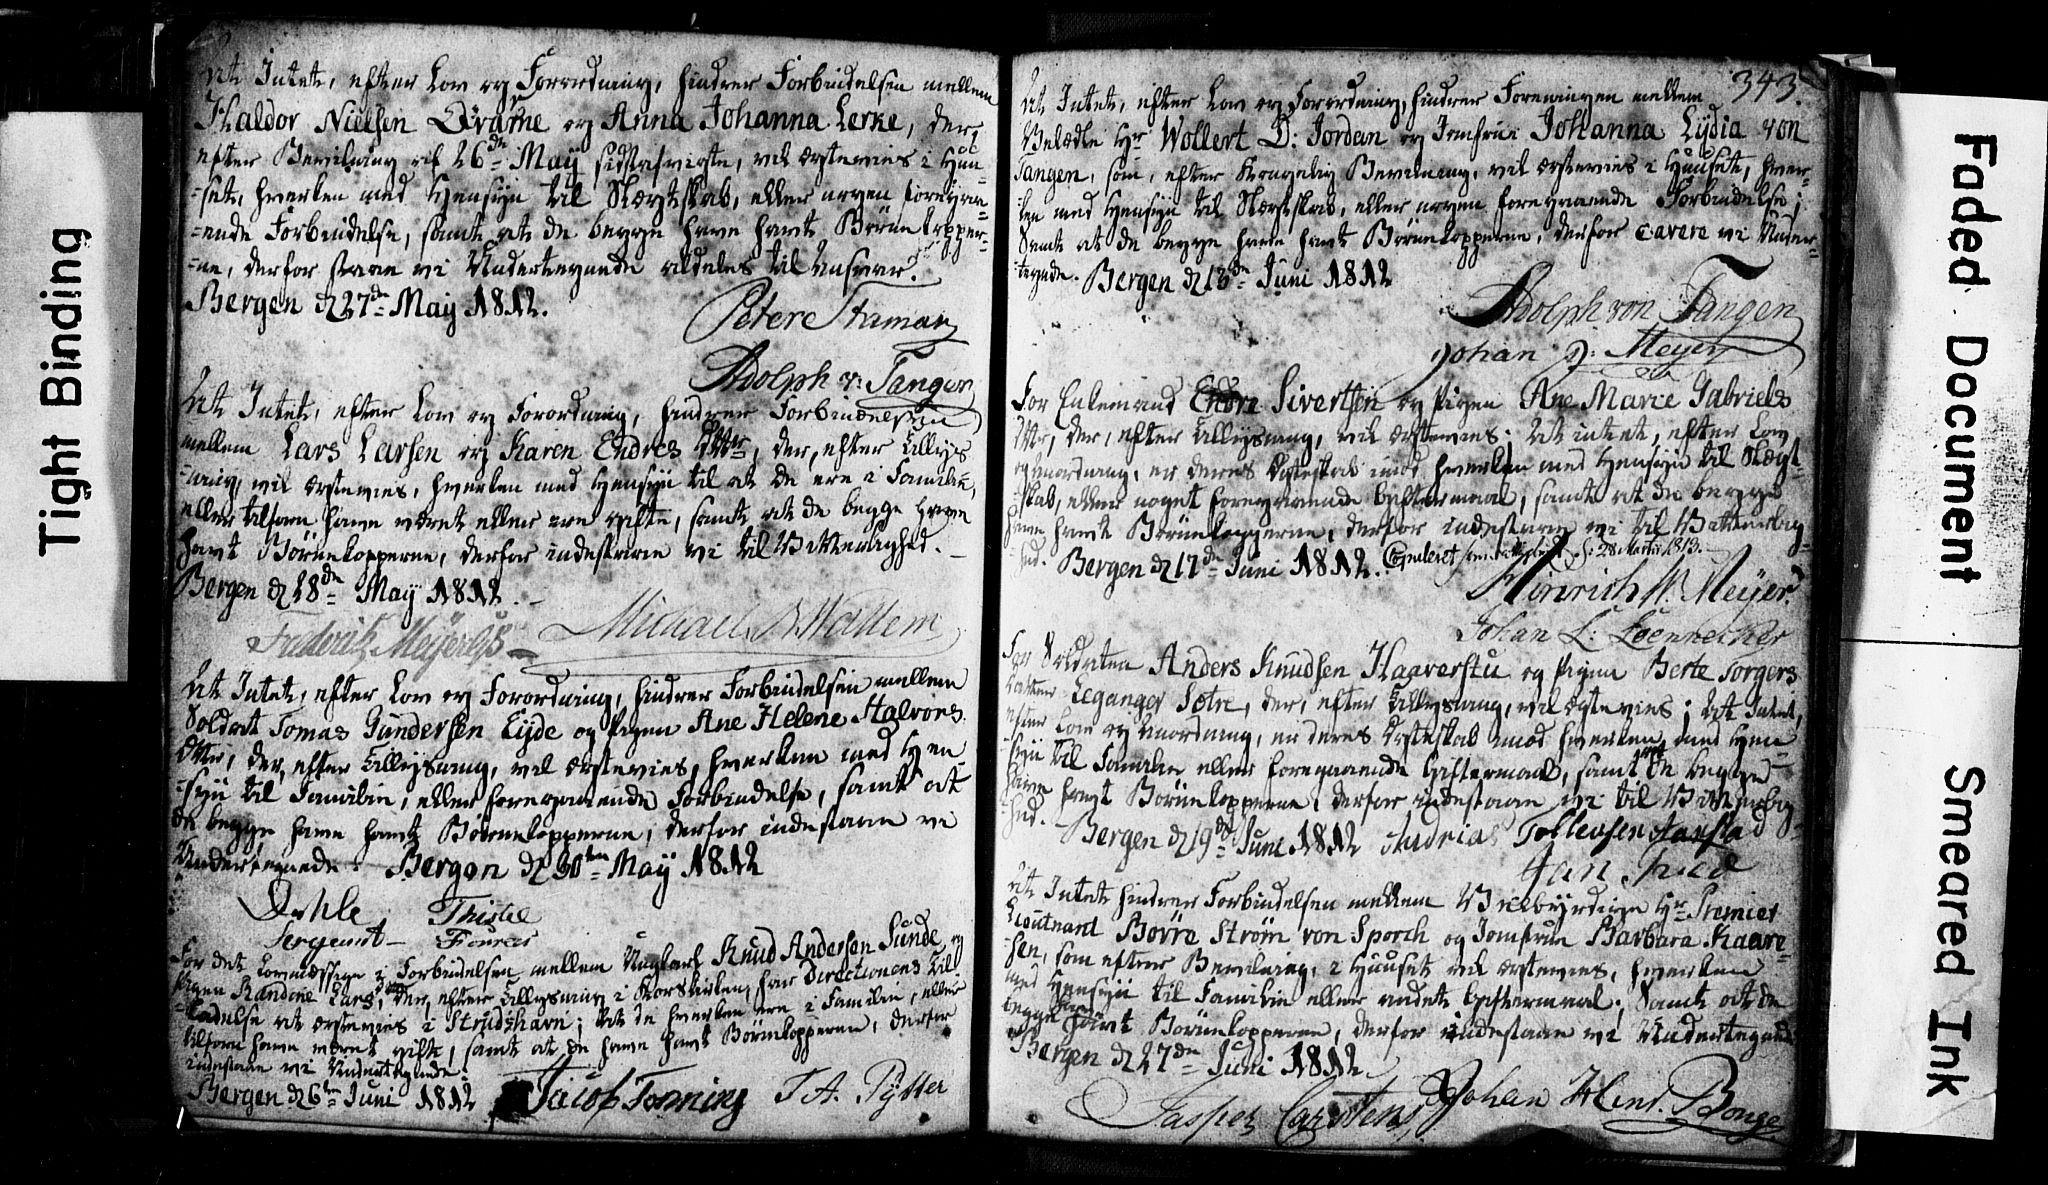 Tight Binding
At Intet, efter Lov og Forordning, hindrer Forbindelsen mellem
Haldor Nielsen Qvarne og Anna Johanna Lerke, der,
efter Bevilning af 26de May sidstafvigte, vil ægtevies i Huu-
-set, hverken med Hensyn til Slægtskab, eller nogen foregaa-
-ende Forbindelse, samt at de begge have havt Børnekopper-
-ne, derfor staae vi Undertegnede aldeles til Ansvar.
Bergen d 27de May 1812.
Peter Haman
Adolph v: Tangen
At Intet, efter Lov og Forordning, hindrer Forbindelsen
mellem Lars Larsen og Karen Endres Dtter, der, efter Tillys-
-ning, vil ægtevies, hverken med Hensyn til at de ere i Familie,
eller tilforn have været eller ere gifte, samt at de begge have
havt Børnekopperne, derfor indestaae vi til Vitterlighed.
Bergen d 28de May 1812.
Friderich Meyer
Michael Wallem
At Intet, efter Lov og Forordning, hindrer Forbindelsen mellem
Soldat Tomas Gundersen Eyde og Pigen Ane Helene Halvors
Dtter, der, efter Tillysning, vil ægtevies, hverken med Hen-
-syn til Familie, eller foregaaende Forbindelse, samt at
de begge have havt Børnekopperne, derfor indestaae vi
Undertegnede. Bergen d 30te May 1812
Dahle Thistel
Sergeant Fourer
For det Lovmæssige i Forbindelsen mellem Ungkarl Knud Andersen Sunde og
Pigen Randine Lars Dtter, der, efter Tillysning i Korskirken, har Directionens Til-
-ladelse at ægtevies i Strudshavn; At de hverken ere i Familie, eller
tilforn have været gifte, samt at de have havt Børnekopperne, derfor
indestaae vi Undertegnede.
Bergen d 6te Juni 1812 Jacob Forming T A. Pytter
343.
At Intet, efter Lov og Forordning, hindrer Foreningen mellem
Velædle Hr Wollert D: Jordan og Jomfrue Johanna Lydia von
Tangen, som, efter Kongelig Bevilning, vil ægtevies i Huuset, hver-
-ken med Hensyn til Slægtskab, eller nogen foregaaende Forbindelse;
Samt at de begge have havt Børnekopperne, derfor cavere vi Under-
-tegnede. Bergen d 13de Juni 1812
Adolph von Tangen
Johan D: Meyer
For Enkemand Endre Sivertsen og Pigen Ane Marie Gabriels
Dtter, der, efter Tillysning, vil ægtevies; At intet, efter Lov
og Anordning, er deres Ægteskab imod hverken med Hensyn til Slægt-
-skab, eller noget foregaaende Giftermaal, samt at de begge
have havt Børnekopperne, derfor indestaae vi til Vitterlig-
-hed. Bergen d 17de Juni 1812. Copuleret 28 Martii 1813.
Hinrich M. Meyer
Johan L: Loennecker
For Soldaten Anders Knudsen Haaverstu og Pigen Berte Torgers
Datter Leganger Sotre, der, efter Tillysning, vil ægtevies; At Intet,
efter Lov og Anordning, er deres Ægteskab imod hverken med Hen-
-syn til Familie eller foregaaende Giftermaal, samt at de begge
have havt Børnekopperne, derfor indestaae vi til Vitterlig-
-hed. Bergen d 19de Juni 1812 Andrias Tollevsen Hanstad
At Intet hindrer Forbindelsen mellem Velbyrdige Hr Premier
Lieutnant Børre Strøm von Sporch og Jomfrue Barbara Kaare-
-sen, som efter Bevilning, i Huuset vil ægtevies, hverken
med Hensyn til Familie eller andet Giftermaal; Samt at de
begge have havt Børnekopperne, derfor indestaae vi Undertegnede
Bergen d 27de Juni 1812.
Jasper Carstens Johan Hend. Bonge
Faded Document
Smeared Ink